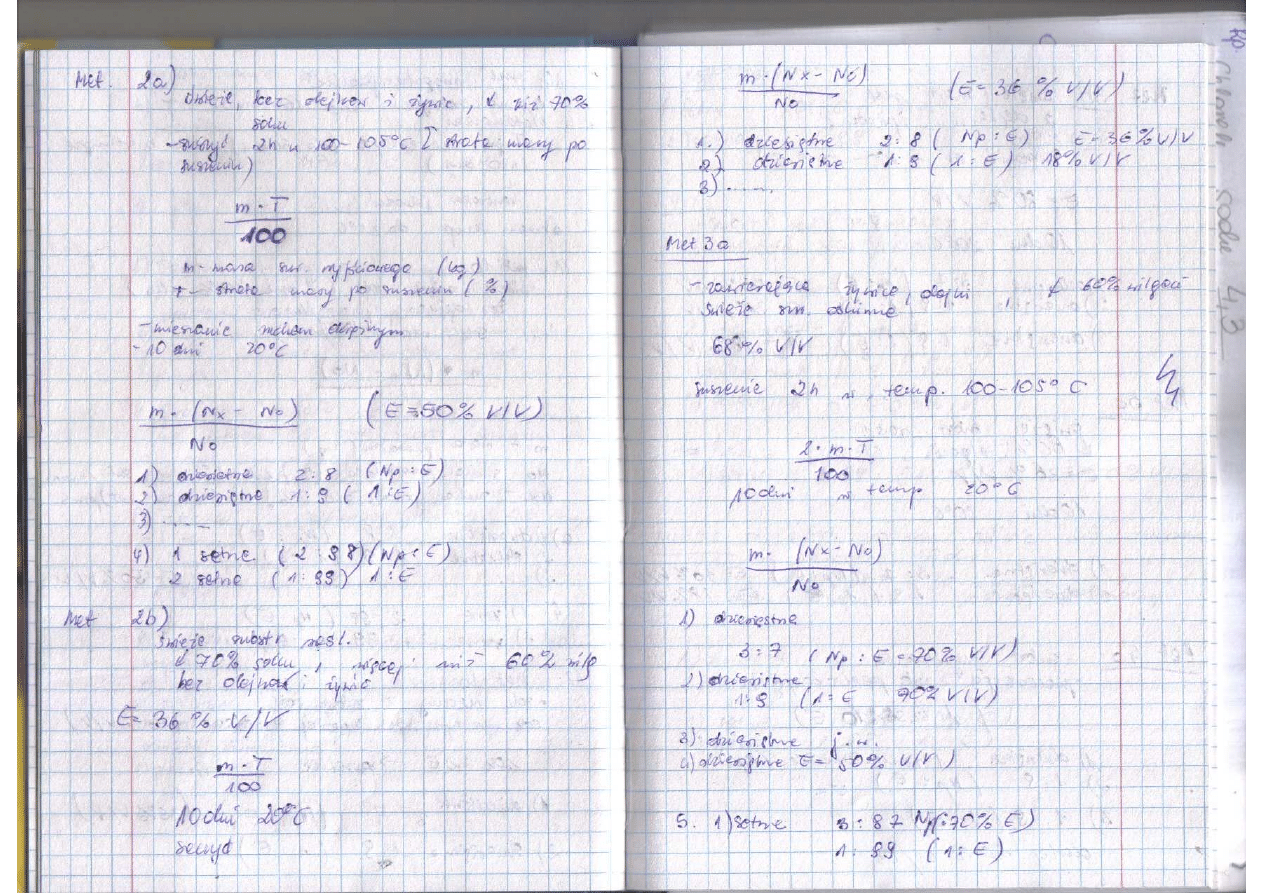 Met. 2a)
świeże, bez olejków i żywic, < niż 70%
soku
- suszyć 2h w 100-105°C [ strata masy po
suszeniu)
m · T
100
m - masa sur. wyjściowego (kg)
T - strata masy po suszeniu (%)
- mieszanie
- 10 dni 20°C
m · (Nx - No)
No
(E = 50% V/V)
1) dziesiętne 2:8 (Np : E)
2) dziesiętne 1:9 ( 1 : E)
3) ......
4) 1 setne (2 98) (Np : E)
2 setne (1:99) 1 : E
Met 2b)
świeże subst rośl.
< 70% soku, więcej niż 60% wilg
bez olejków i żywic
E = 36% V/V
m · T
100
10 dni 20°C
m · (Nx - No)
No
(E = 36 % V/V)
1.) dziesiętne 2:8 ( Np : E) E = 36% V/V
2) dziesiętne 1:9 ( 1 : E) 18% V/V
3) ......
Met 3a
- zawierające żywice, olejki, < 60% wilgoci
świeże sur. roślinne
68 % V/V
suszenie 2h w temp. 100-105°C
2 · m · T
100
10 dni w temp 20°C
m · (Nx - No)
No
1) dziesiętne
3:7 (Np : E = 70% V/V)
2) dziesiętne
1:9 (1 : E 70% V/V)
3) dziesiętne j.w.
4) dziesiętne E = 50% V/V)
5. 1) setne 3 : 87 Np(:70% E)
1 : 99 (1 : E)